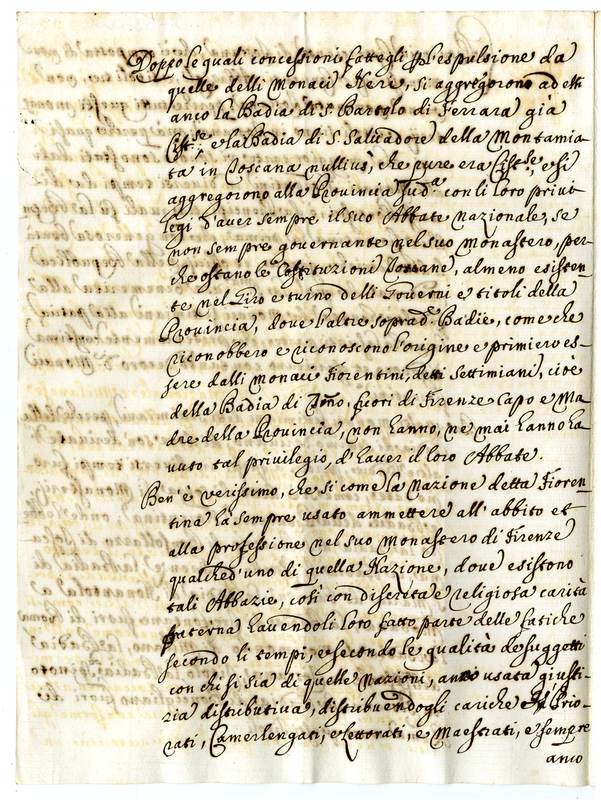 Doppo le quali concessioni fattegli p l'espulsione da
quelle delli Monaci Neri, si aggregorono ad etti
anco la Badia di S. Bartolo di Ferrara già
Cist.se, e la Badia di S. Salvadore della Montamia-
ta in Toscana nullius, che pure era Cist.se, e si
aggregorono alla Provincia sud.a con li loro privi
legi d'aver sempre il suo Abbate nazionale, se
non sempre governante nel suo Monastero, per-
che ostano le Costituzioni, almeno esisten-
te nel Giro e turno delli Governi e titoli della
Provincia, dove l'altre soprad.e Badie, come che
riconobbero e riconoscono l'origine e primiero es-
sere dalli Monaci Fiorentini, detti Settimiani, cioè
della Badia di fuori di Firenze Capo e Ma-
dre della Provincia, non hanno, ne mai hanno ha-
vuto tal privilegio, d'haver il loro Abbate.
Ben'è verissimo, che si come la Nazione detta Fioren-
tina ha sempre usato ammettere all'abbito et
alla professione nel suo Monastero di Firenze
qualched'uno di quella Nazione, dove esistono
tali Abbazie, così con discreta e religiosa carità
fraterna havendoli loro fatto parte delle fatiche
secondo li tempi, e secondo le qualità de suggetti
con chi si sia di quelle Nazioni, anco usata giusti-
zia distributiva, distribuendogli cariche di Prio-
rati, Camerlengati, e Lettorati, e Maestrati, e sempre
anco